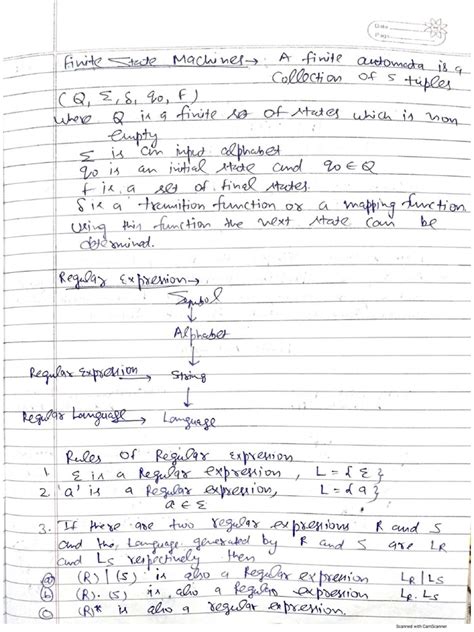 Date
Page
Finite State Machines → A finite automata is a
Collection of 5 tuples
(Q, Σ, δ, q0, F)
where Q is a finite set of states which is non
empty
Σ is an input alphabet
q0 is an initial state and q0 ∈ Q
F is a set of final states.
δ is a transition function or a mapping function
using this function the next state can be
determined.
Regular Expression →
Symbol
↓
Alphabet
↓
Regular Expression → String
↓
Regular Language → Language
Rules of Regular Expression
1. Σ is a Regular expression, L = {Σ}
2. 'a' is a Regular expression, L = {a}
a ∈ Σ
3. If there are two regular expressions R and S
and the Language generated by R and S are LR
and LS respectively then
(a) (R) | (S) is also a Regular expression LR | LS
(b) (R) . (S) is also a Regular expression LR . LS
(c) (R)* is also a regular expression.
Scanned with CamScanner